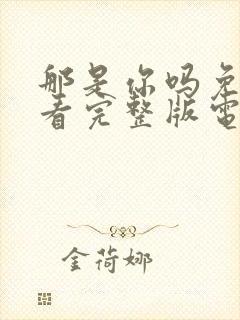 那是你吗免
看完整版電
金荷娜